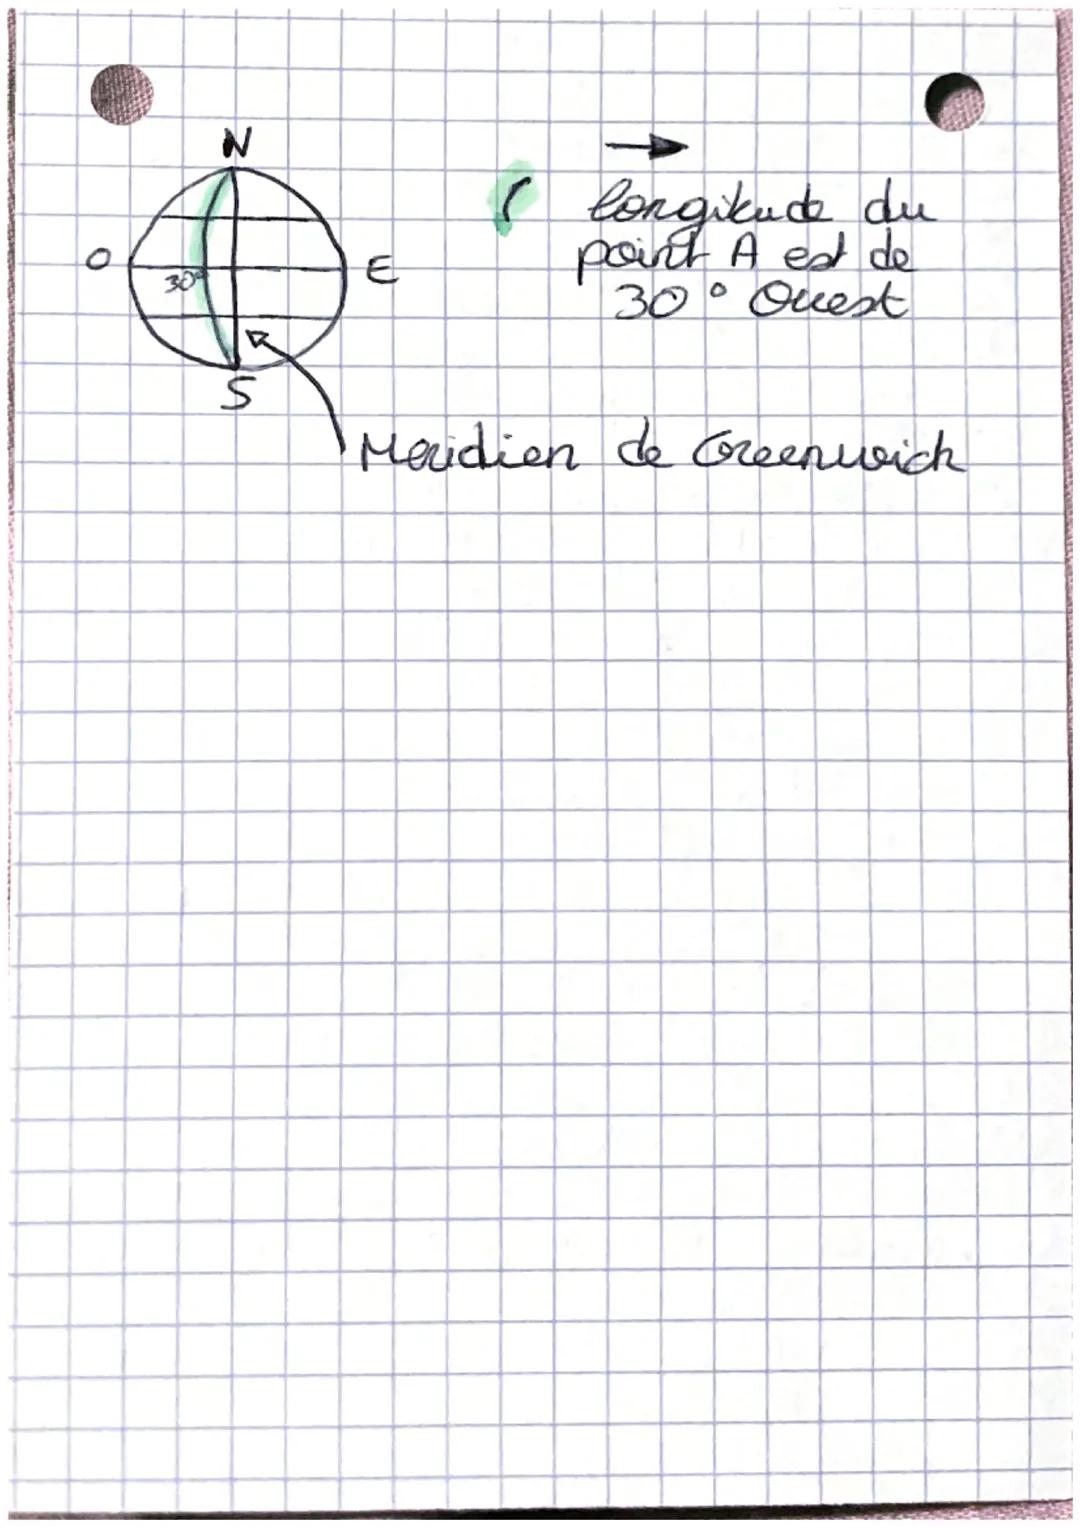 N
O
30°
E
S
longitude du
point A est de
30° Ouest
Meridien de Greenwich